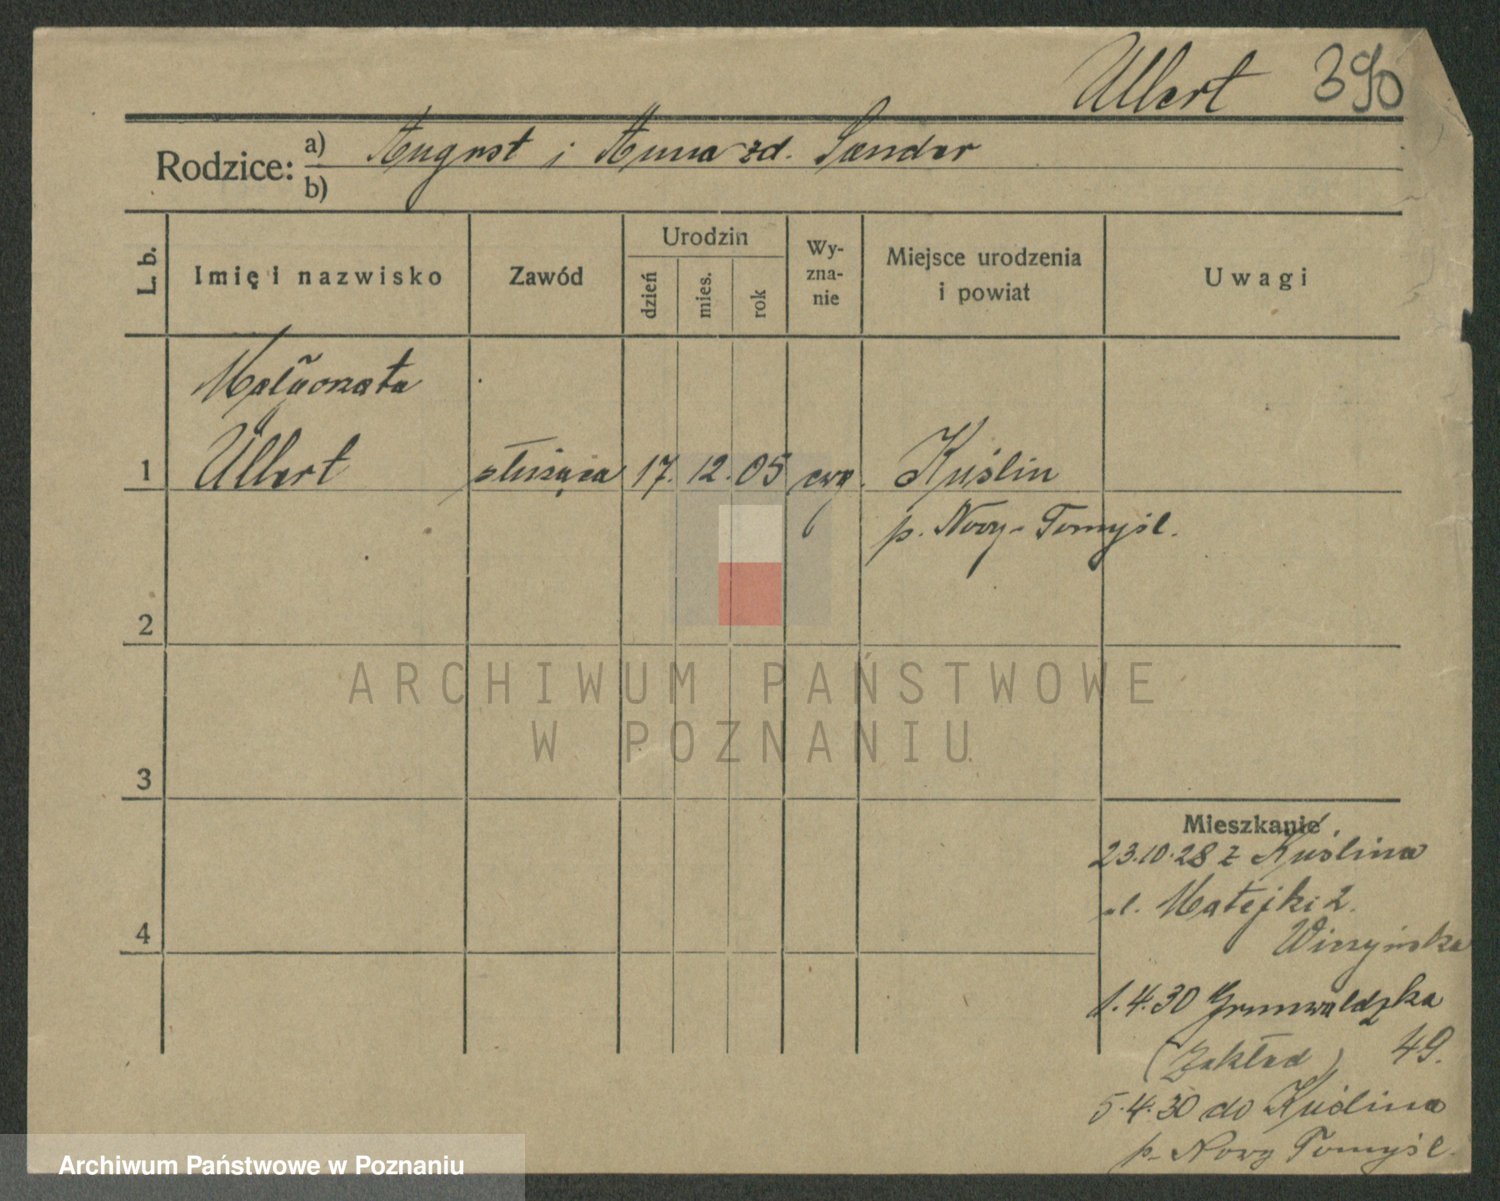 Ullert 390
Rodzice: a) August i Anna zd. Sander
b)
L. b.
Imię i nazwisko
Zawód
Urodzin
dzień
mies.
rok
Wy-
zna-
nie
Miejsce urodzenia
i powiat
Uwagi
Małgorzata
1 Ullert służąca 17. 12. 05 ewg. Kuślin
p. Nowy-Tomyśl.
2
3
4
Mieszkanie
23.10.28 z Kuślina
ul. Matejki 2.
1.4.30 Grunwaldzka
(Zakład) 49.
5.4.30 do Kuślina
p. Nowy Tomyśl.
ARCHIWUM PAŃSTWOWE
W POZNANIU
Archiwum Państwowe w Poznaniu